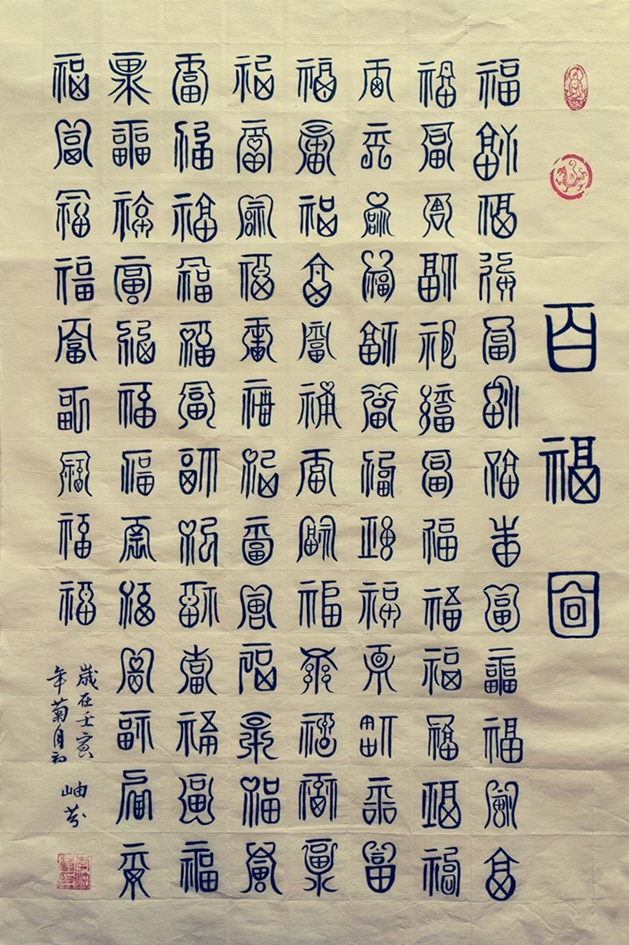 百福圖
福福福福福福福福福福福福福
福福福福福福福福福福福福福
福福福福福福福福福福福福福
福福福福福福福福福福福福福
福福福福福福福福福福福福福
福福福福福福福福福福福福福
福福福福福福福福福福福福福
福福福福福福福福福
歲在壬寅
年菊月初 岫芬